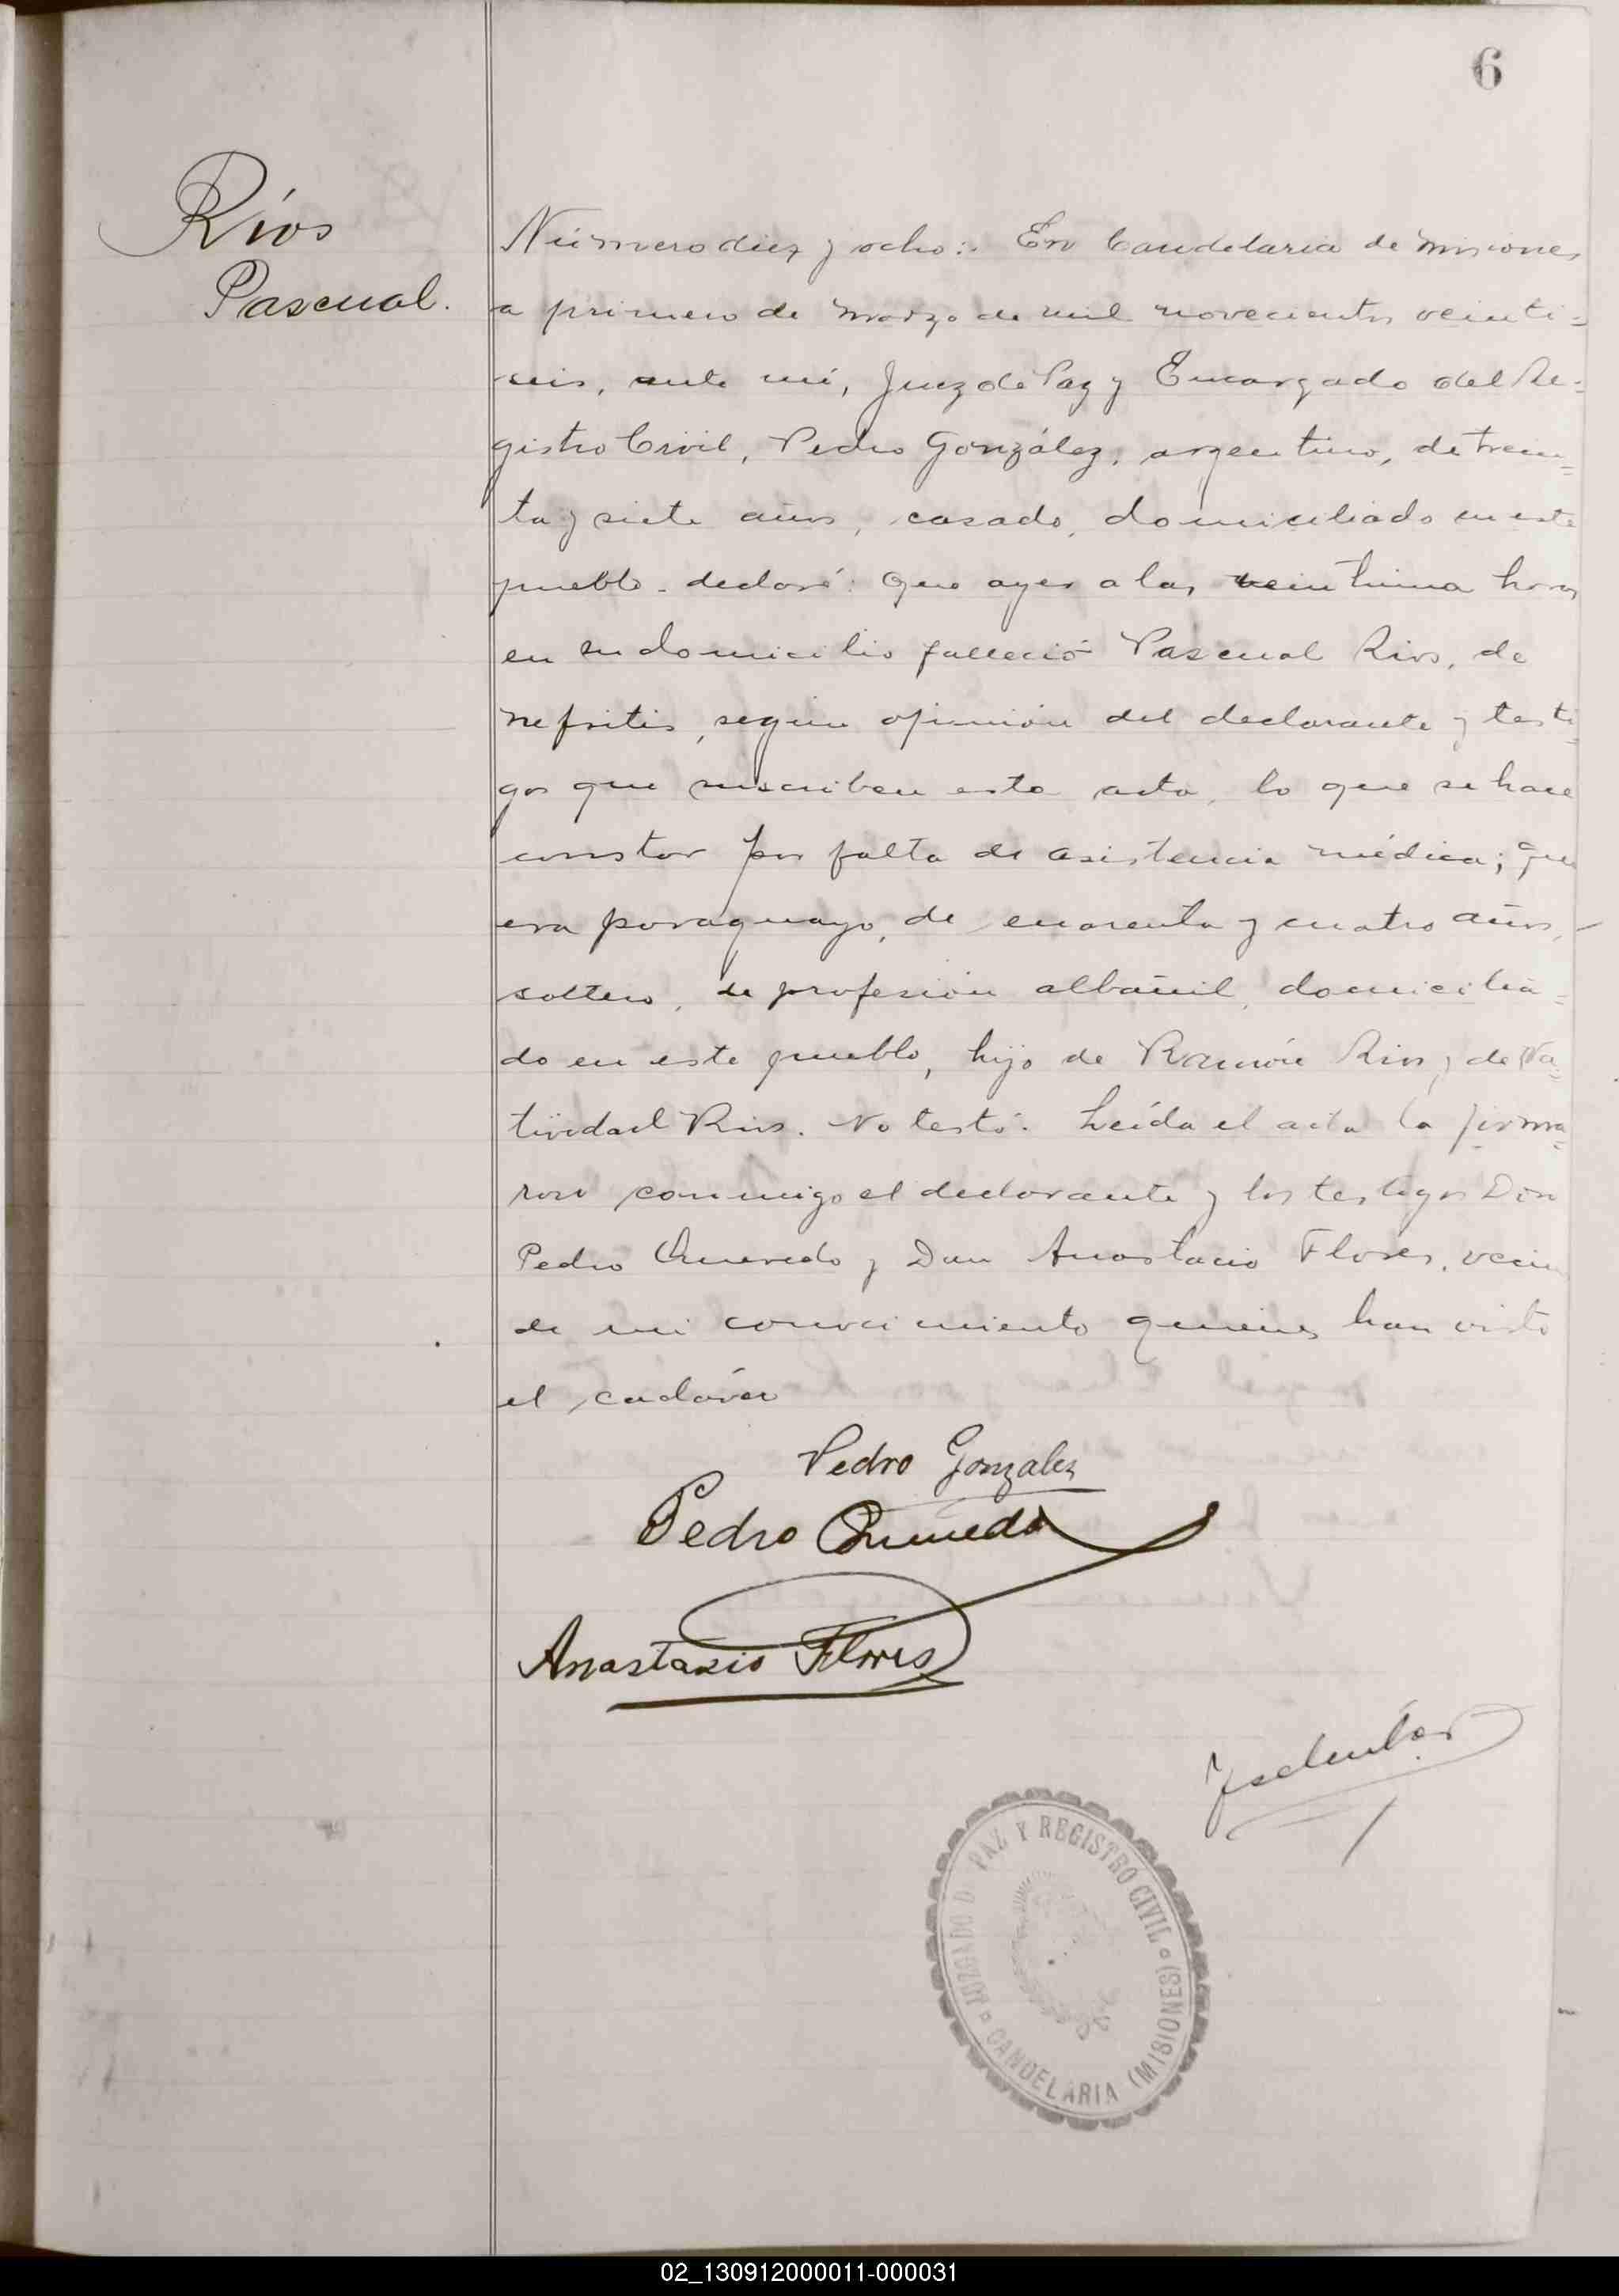 6
Ríos
Pascual.
Número diez y ocho: En Candelaria de Misiones
a primero de Marzo de mil novecientos veinti=
seis, ante mí, Juez de Paz y Encargado del Re=
gistro Civil, Pedro González, argentino, de trein=
ta y siete años, casado, domiciliado en este
pueblo, declaró: Que ayer a las veintiuna horas
en su domicilio falleció Pascual Rios, de
nefritis, según opinión del declarante y testi=
gos que suscriben esta acta, lo que se hace
constar por falta de asistencia médica; que
era paraguayo, de cuarenta y cuatro años,
soltero, de profesión albañil, domicilia=
do en este pueblo, hijo de Ramón Rios y de Na=
tividad Rios. No testó. Leída el acta la firma=
ron conmigo el declarante y los testigos Don
Pedro y Don Anastacio Flores, vecinos
de mi conocimiento quienes han visto
el cadáver
Pedro Gonzalez
Pedro
Anastasio Flores
JUZGADO DE PAZ Y REGISTRO CIVIL
CANDELARIA (MISIONES)
02_130912000011-000031